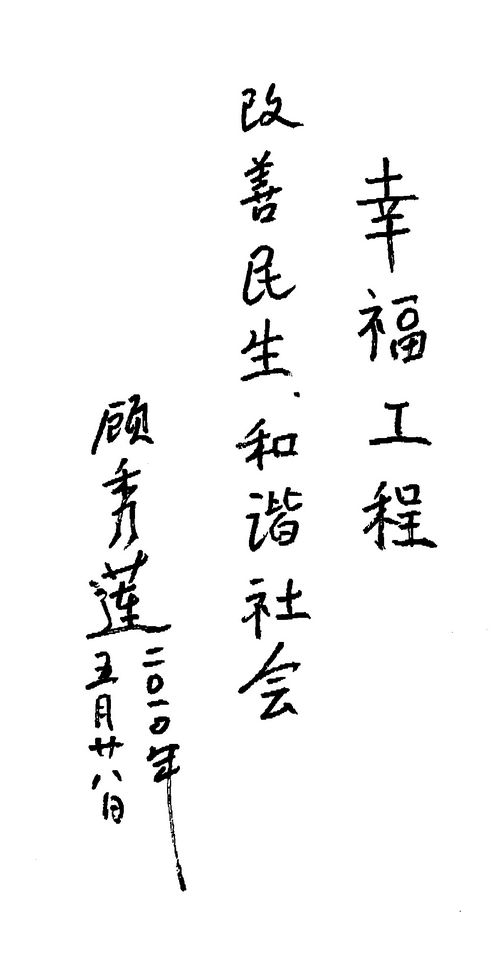 幸福工程
改善民生、和谐社会
顾秀莲
二〇一〇年
五月廿八日